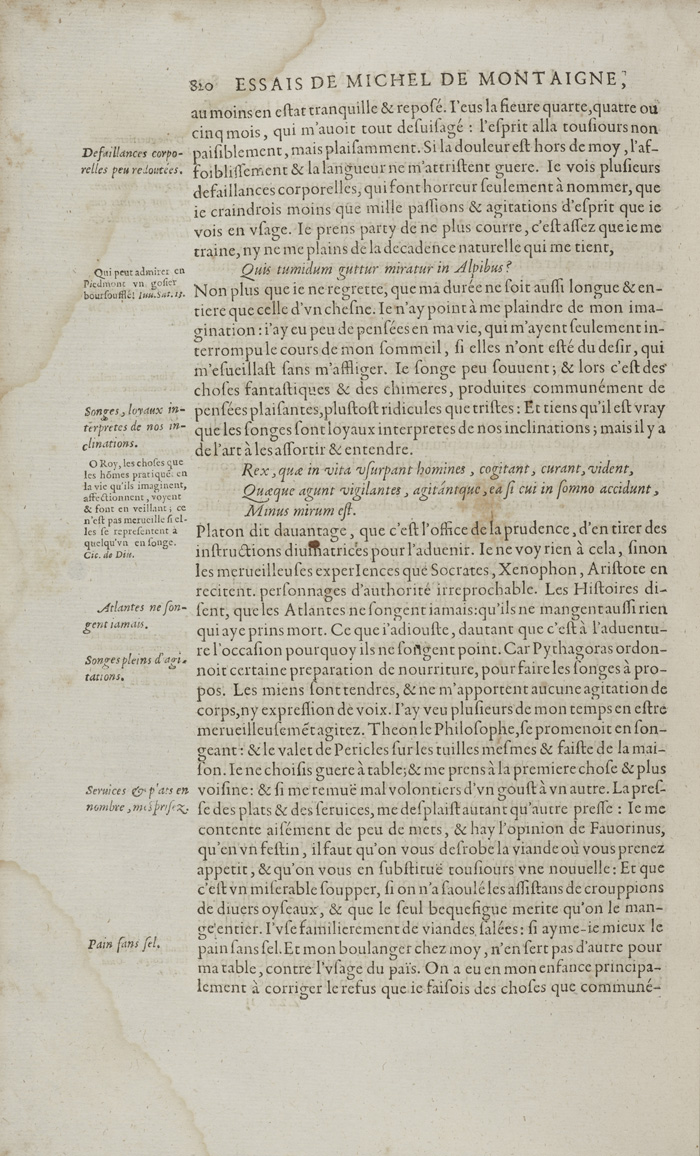 820 ESSAIS DE MICHEL DE MONTAIGNE,
au moins en eſtat tranquille & repoſé. I'eus la fieure quarte, quatre ou
cinq mois, qui m'auoit tout deſuiſagé : l'eſprit alla touſiours non
paiſiblement, mais plaiſamment. Si la douleur eſt hors de moy, l'af-
foibliſſement & la langueur ne m'attriſtent guere. Ie vois pluſieurs
defaillances corporelles, qui font horreur ſeulement à nommer, que
ie craindrois moins que mille paſſions & agitations d'eſprit que ie
vois en vſage. Ie prens party de ne plus courre, c'eſt aſſez que ie me
traine, ny ne me plains de la decadence naturelle qui me tient,
Quis tumidum guttur miratur in Alpibus ?
Non plus que ie ne regrette, que ma durée ne ſoit auſſi longue & en-
tiere que celle d'vn cheſne. Ie n'ay point à me plaindre de mon ima-
gination : i'ay eu peu de penſées en ma vie, qui m'ayent ſeulement in-
terrompu le cours de mon ſommeil, ſi elles n'ont eſté du deſir, qui
m'eſueillaſt ſans m'affliger. Ie ſonge peu ſouuent ; & lors c'eſt des
choſes fantaſtiques & des chimeres, produites communément de
penſées plaiſantes, pluſtoſt ridicules que triſtes : Et tiens qu'il eſt vray
que les ſonges ſont loyaux interpretes de nos inclinations ; mais il y a
de l'art à les aſſortir & entendre.
Rex, quæ in vita vſurpant homines, cogitant, curant, vident,
Quæque agunt vigilantes, agitántque, ea ſi cui in ſomno accidunt,
Minus mirum eſt.
Platon dit dauantage, que c'eſt l'office de la prudence, d'en tirer des
inſtructions diuinatrices pour l'aduenir. Ie ne voy rien à cela, ſinon
les merueilleuſes experIences que Socrates, Xenophon, Ariſtote en
recitent. perſonnages d'authorité irreprochable. Les Hiſtoires di-
ſent, que les Atlantes ne ſongent iamais: qu'ils ne mangent auſſi rien
qui aye prins mort. Ce que i'adiouſte, dautant que c'eſt à l'auentu-
re l'occaſion pourquoy ils ne ſongent point. Car Pythagoras ordon-
noit certaine preparation de nourriture, pour faire les ſonges à pro-
pos. Les miens ſont tendres, & ne m'apportent aucune agitation de
corps, ny expreſſion de voix. I'ay veu pluſieurs de mon temps en eſtre
merueilleuſemēt agitez. Theon le Philoſophe, ſe promenoit en ſon-
geant : & le valet de Pericles ſur les tuilles meſmes & faiſte de la mai-
ſon. Ie ne choiſis guere à table; & me prens à la premiere choſe & plus
voiſine : & ſi me remuë mal volontiers d'vn gouſt à vn autre. La preſ-
ſe des plats & des ſeruices, me deſplaiſt autant qu'autre preſſe : Ie me
contente aiſément de peu de mets, & hay l'opinion de Fauorinus,
qu'en vn feſtin, il faut qu'on vous deſrobe la viande où vous prenez
appetit, & qu'on vous en ſubſtituë touſiours vne nouuelle : Et que
c'eſt vn miſerable ſoupper, ſi on n'a ſaoulé les aſſiſtans de crouppions
de diuers oyſeaux, & que le ſeul bequefigue merite qu'on le man-
ge entier. I'vſe familierement de viandes ſalées : ſi ayme-ie mieux le
pain ſans ſel. Et mon boulanger chez moy, n'en ſert pas d'autre pour
ma table, contre l'vſage du païs. On a eu en mon enfance principa-
lement à corriger le refus que ie faiſois des choſes que communé-
Defaillances corpo-
relles peu redoutées.
Qui peut admirer en
Piedmont vn goſier
bourſoufflé? Iuu. Sat. 13.
Songes, loyaux in-
terpretes de nos in-
clinations.
O Roy, les choſes que
les hōmes pratiquē. en
la vie qu'ils imaginent,
affectionnent, voyent
& font en veillant ; ce
n'eſt pas merueille ſi el-
les ſe repreſentent à
quelqu'vn en ſonge.
Cic. de Diu.
Atlantes ne ſon-
gent iamais.
Songes pleins d'agi-
tations.
Seruices & plats en
nombre, meſpriſez.
Pain ſans ſel.